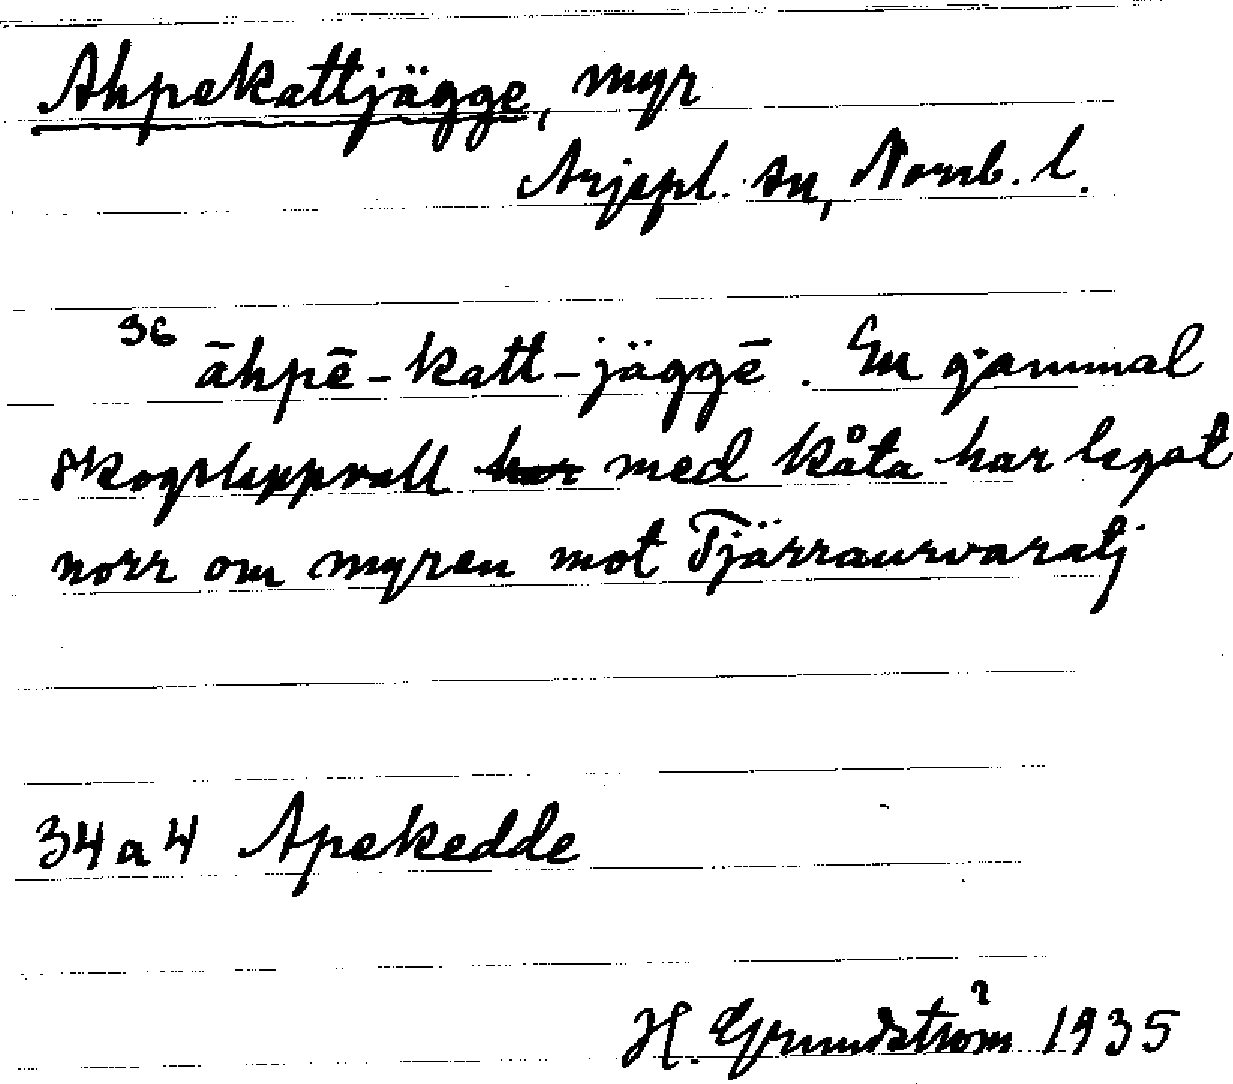 Ahpekattjägge, myr
Arjepl. sn, Norrb. l.
36 āhpē-katt-jäggē. En gammal
skogslappvall har med kåta har legat
norr om myren mot Tjärraurvaratj
34 a 4 Apekedde
H. Grundström 1935